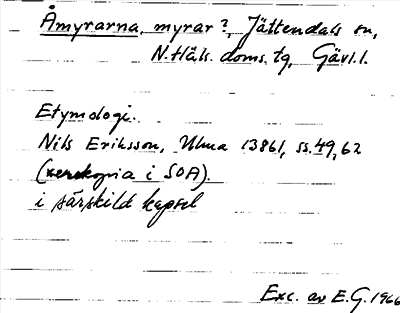 Åmyrarna, myrar?, Jättendals sn,
N. Häls. doms. tg, Gävl. l.
Etymologi.
Nils Eriksson, Ulma 13861, ss. 49, 62
(xerokopia i SOA).
i särskild kapsel
Exc. av E.G. 1966